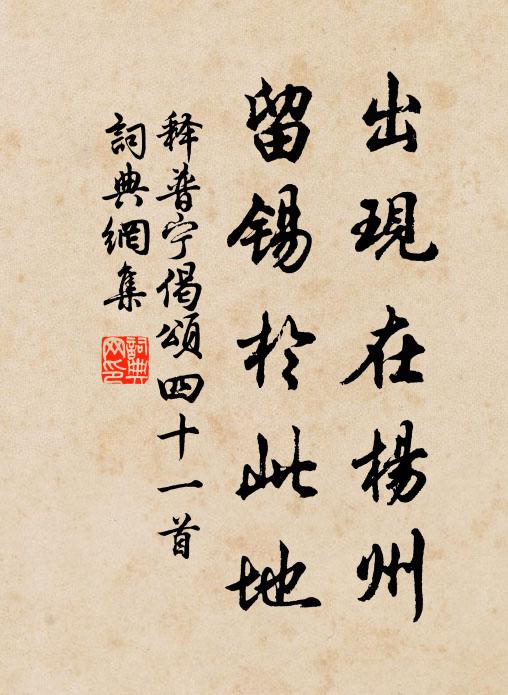 出現在楊州
留錫於此地
釋普宁偈頌四十一首
詞典網集
詞典網印